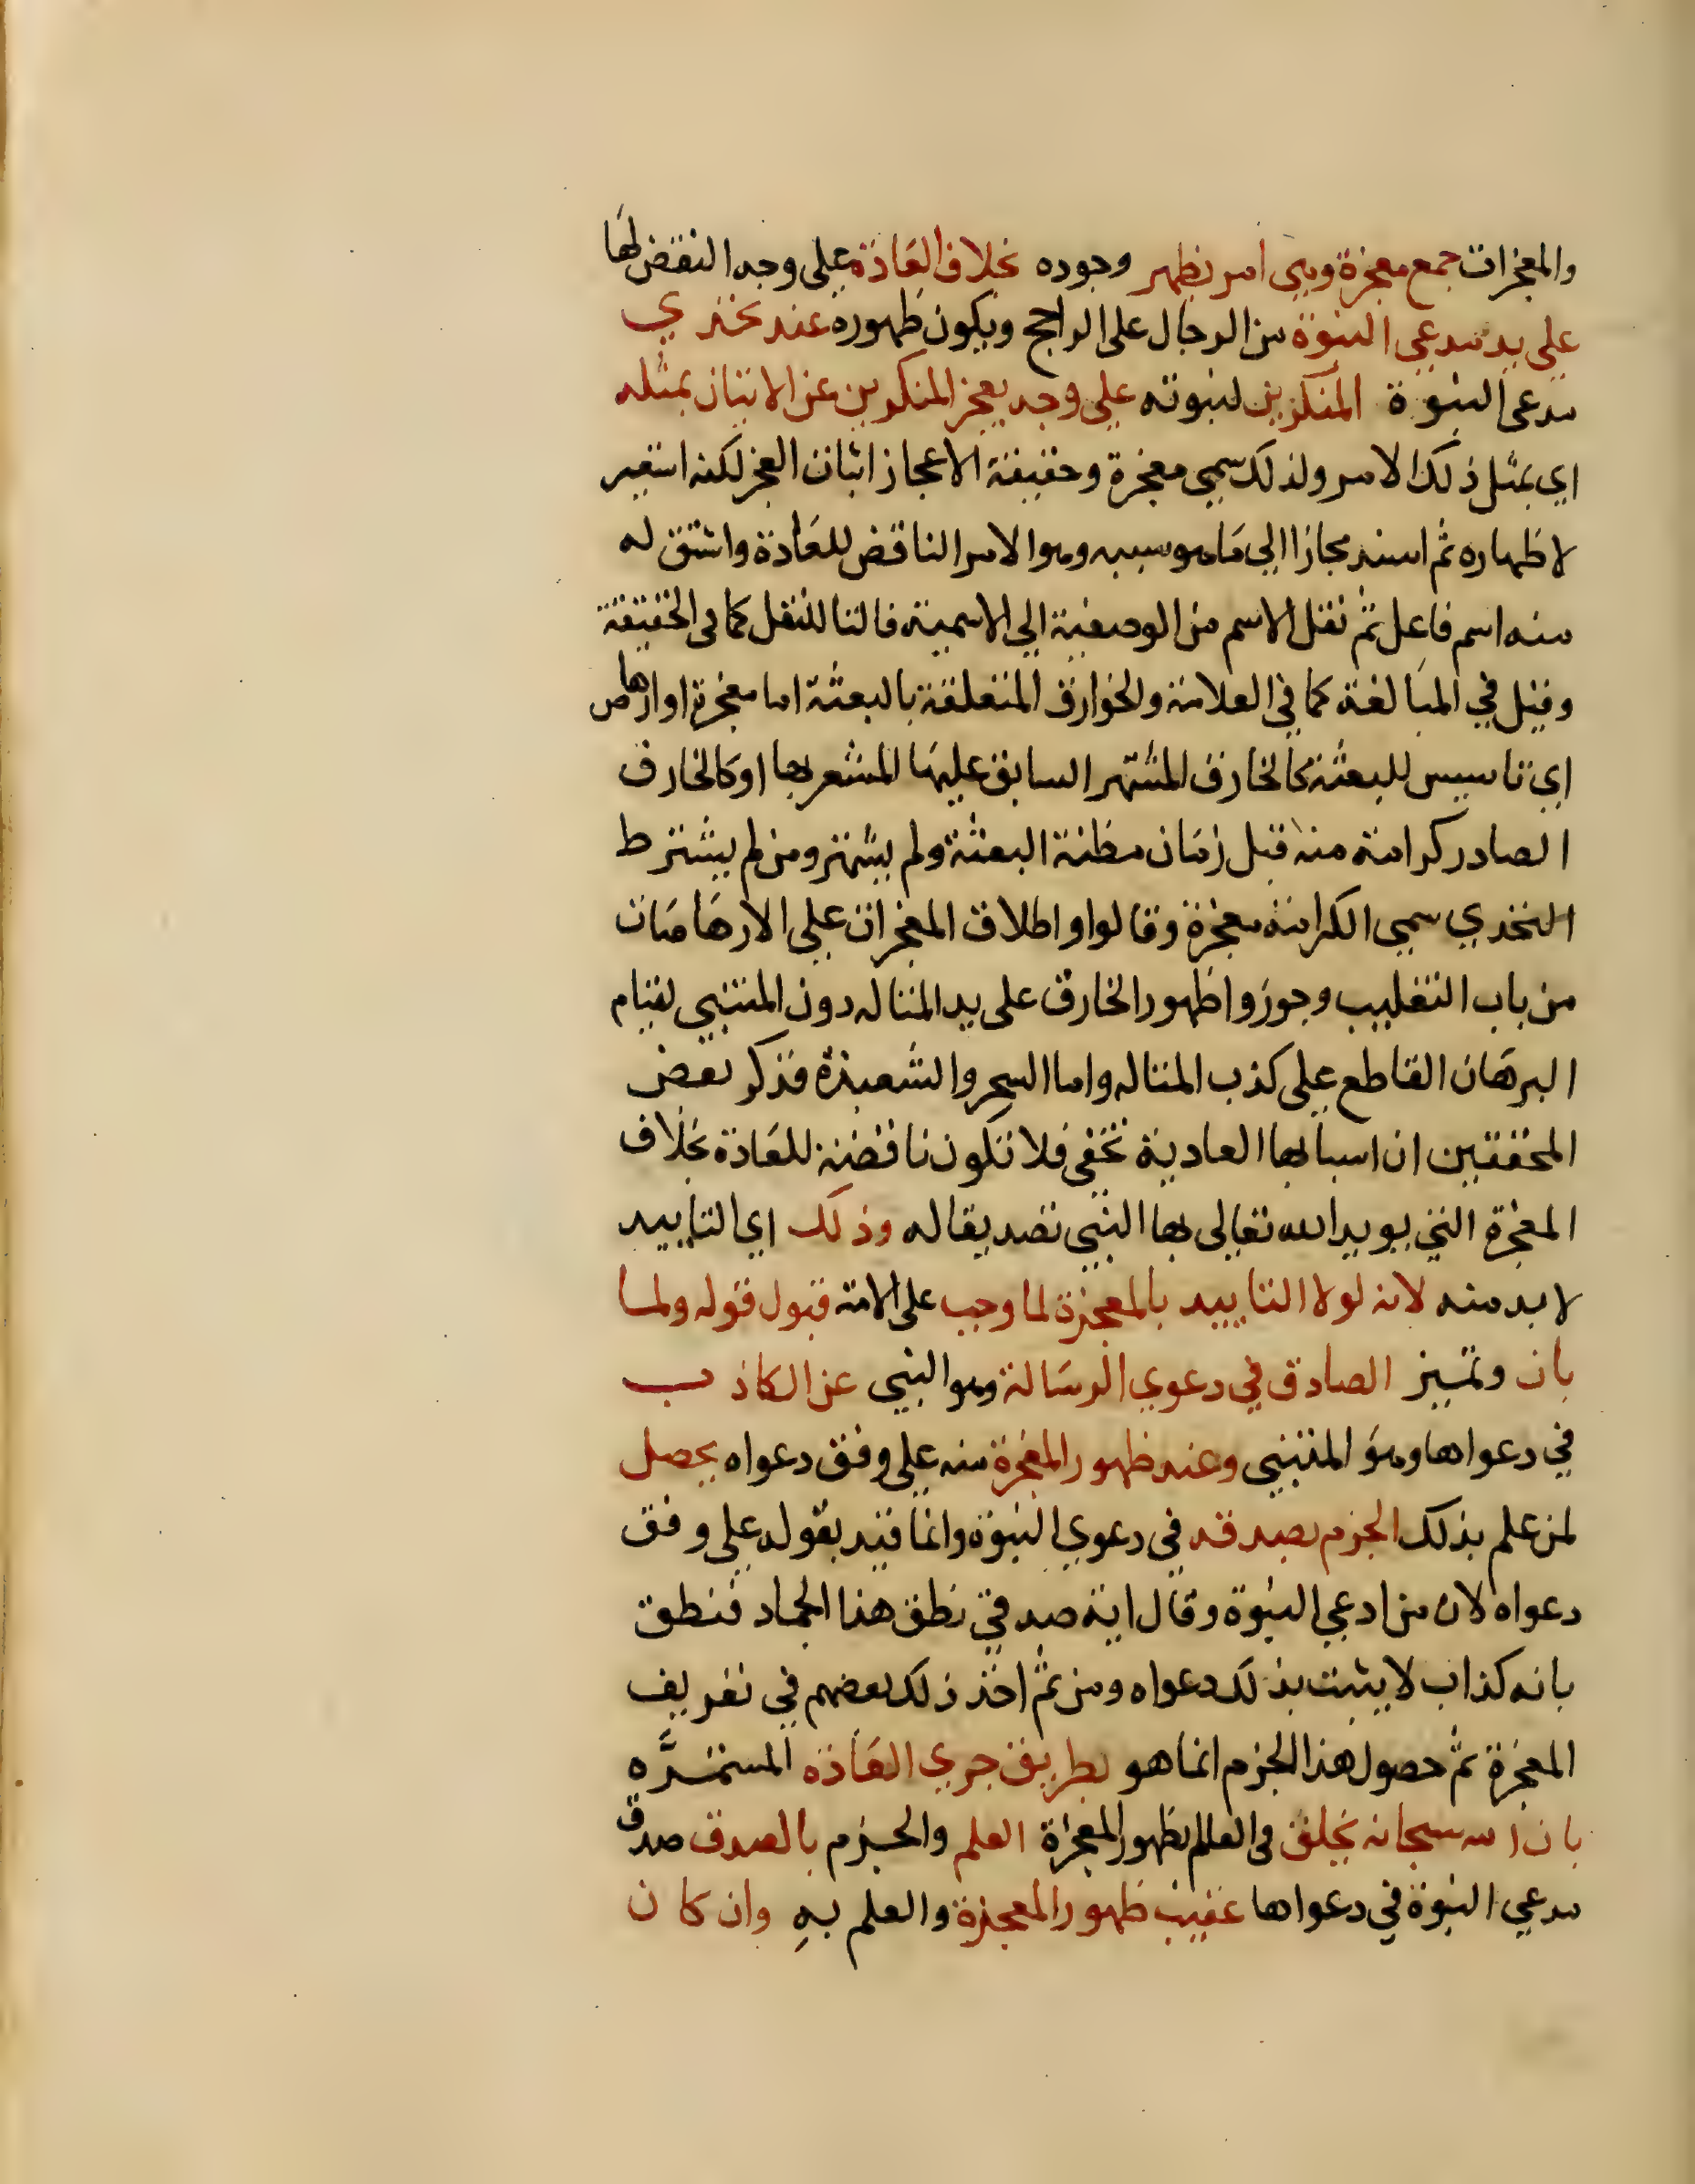 والمعجزات جمع معجزة وهي امر يظهر وجوده بخلاف العادة علي وجه النقض لها
علي يد مدعي النبوة من الرجال على الراجح ويكون ظهوره عند تحدي
مدعى النبوة المنكرين لنبوته علي وجه يعجز المنكرين عن الاتيان بمثله
اي بمثل ذلك الامر ولذلك سمي معجزة وحقيقة الاعجاز اثبات العجز لكنه استعير
لاظهاره ثم اسند مجازا الي ما هو سببه وهو الامر الناقض للعادة واشتق له
منه اسم فاعل ثم نقل الاسم من الوصفية الي الاسمية فالتا للنقل كما في الحقيقة
وقيل في المبالغة كما في العلامة والخوارق المتعلقة بالبعثة اما معجزة او ارهاص
اي تاسيس للبعثة كالخارق المشتهر السابق عليها المشعر بها او كالخارق
الصادر كرامة منه قبل زمان مظنة البعثة ولم يشتهر ومن لم يشترط
التحدي سمي الكرامة معجزة وقالوا واطلاق المعجزات علي الارهاصات
من باب التغليب وجوزوا ظهور الخارق على يد المتاله دون المتنبي لقيام
البرهان القاطع علي كذب المتاله واما السحر والشعبذة فذكر بعض
المحققين ان اسبابها العادية تخفى فلا تكون ناقضة للعادة بخلاف
المعجزة التي يويد الله تعالى بها النبي تصديقا له وذلك اي التاييد
لا بد منه لانه لولا التاييد بالمعجزة لما وجب على الامة قبول قوله ولما
بان وتميز الصادق في دعوي الرسالة وهو النبي عن الكاذب
في دعواها وهو المتنبي وعند ظهور المعجزة منه علي وفق دعواه يحصل
لمن علم بذلك الجزم بصدقه في دعوي النبوة وانما قيد بقوله علي وفق
دعواه لان من ادعي النبوة وقال اية صدقي نطق هذا الجماد فنطق
بانه كذاب لا يثبت بذلك دعواه ومن ثم اخذ ذلك بعضهم في تعريف
المعجزة ثم حصول هذا الجزم انما هو بطريق جري العادة المستمرَّه
بان الله سبحانه يخلق في العالم بظهور المعجزة العلم والجزم بالصدق صدق
مدعي النبوة في دعواها عقيب ظهور المعجزة والعلم بهِ وان كان